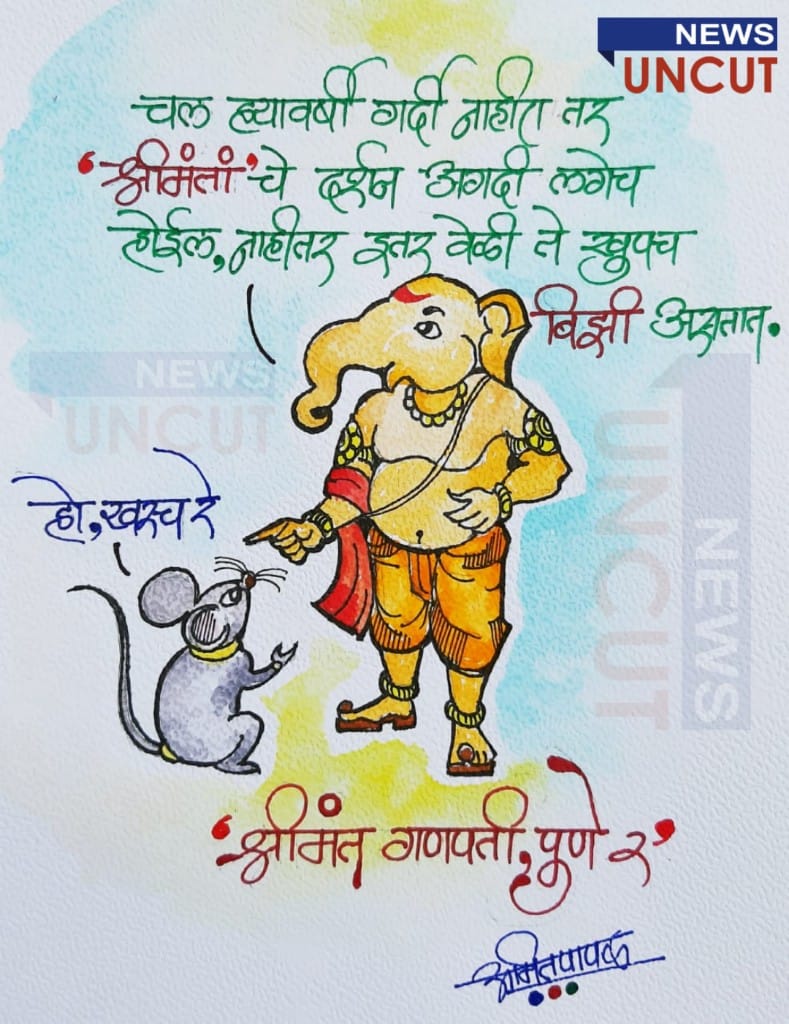 NEWS
UNCUT
चल ह्यावर्षी गर्दी नाहीत तर
'श्रीमंतां'चे दर्शन अगदी लगेच
होईल, नाहीतर इतर वेळी ते खुपच
बिझी असतात.
NEWS
UNCUT
हो, खरंच रे
NEWS
UNCUT
'श्रीमंत गणपती, पुणे २'
अमितपापळ